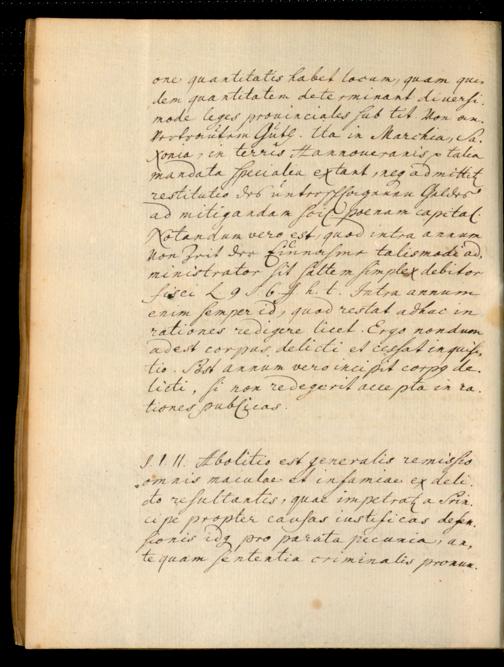 one quantitatis habet locum, quam qui„
dem quantitatem determinant diversi„
mode leges provinciales sub tit. Von an„
vertrautem Guthe. Ita in Marchia, Sa„
xonia, in terris Hannoveranis talia
mandata specialia extant, neq admittit
restitutio des unterschlagenen Geldes
ad mitigandam poenam capital.
Notandum vero est, quod intra annum
von Zeit der Einnahme talismodi ad„
ministrator sit saltem simplex debitor
fisci L 9 § 6 ff h. t. Intra annum
enim semper id, quod restat adhuc in
rationes redigere licet. Ergo nondum
adest corpus delicti et cessat inquisi„
tio. Post annum vero incipit corpq de„
licti, si non redegerit accepta in ra„
tiones publicas.
Abolitio est generalis remissio
omnis maculae et infamiae ex deli„
cto resultantis, quae impetrat a Prin„
cipe propter causas iustificas defen„
sionis idq pro parata pecunia, an„
te quam sententia criminalis pronun„